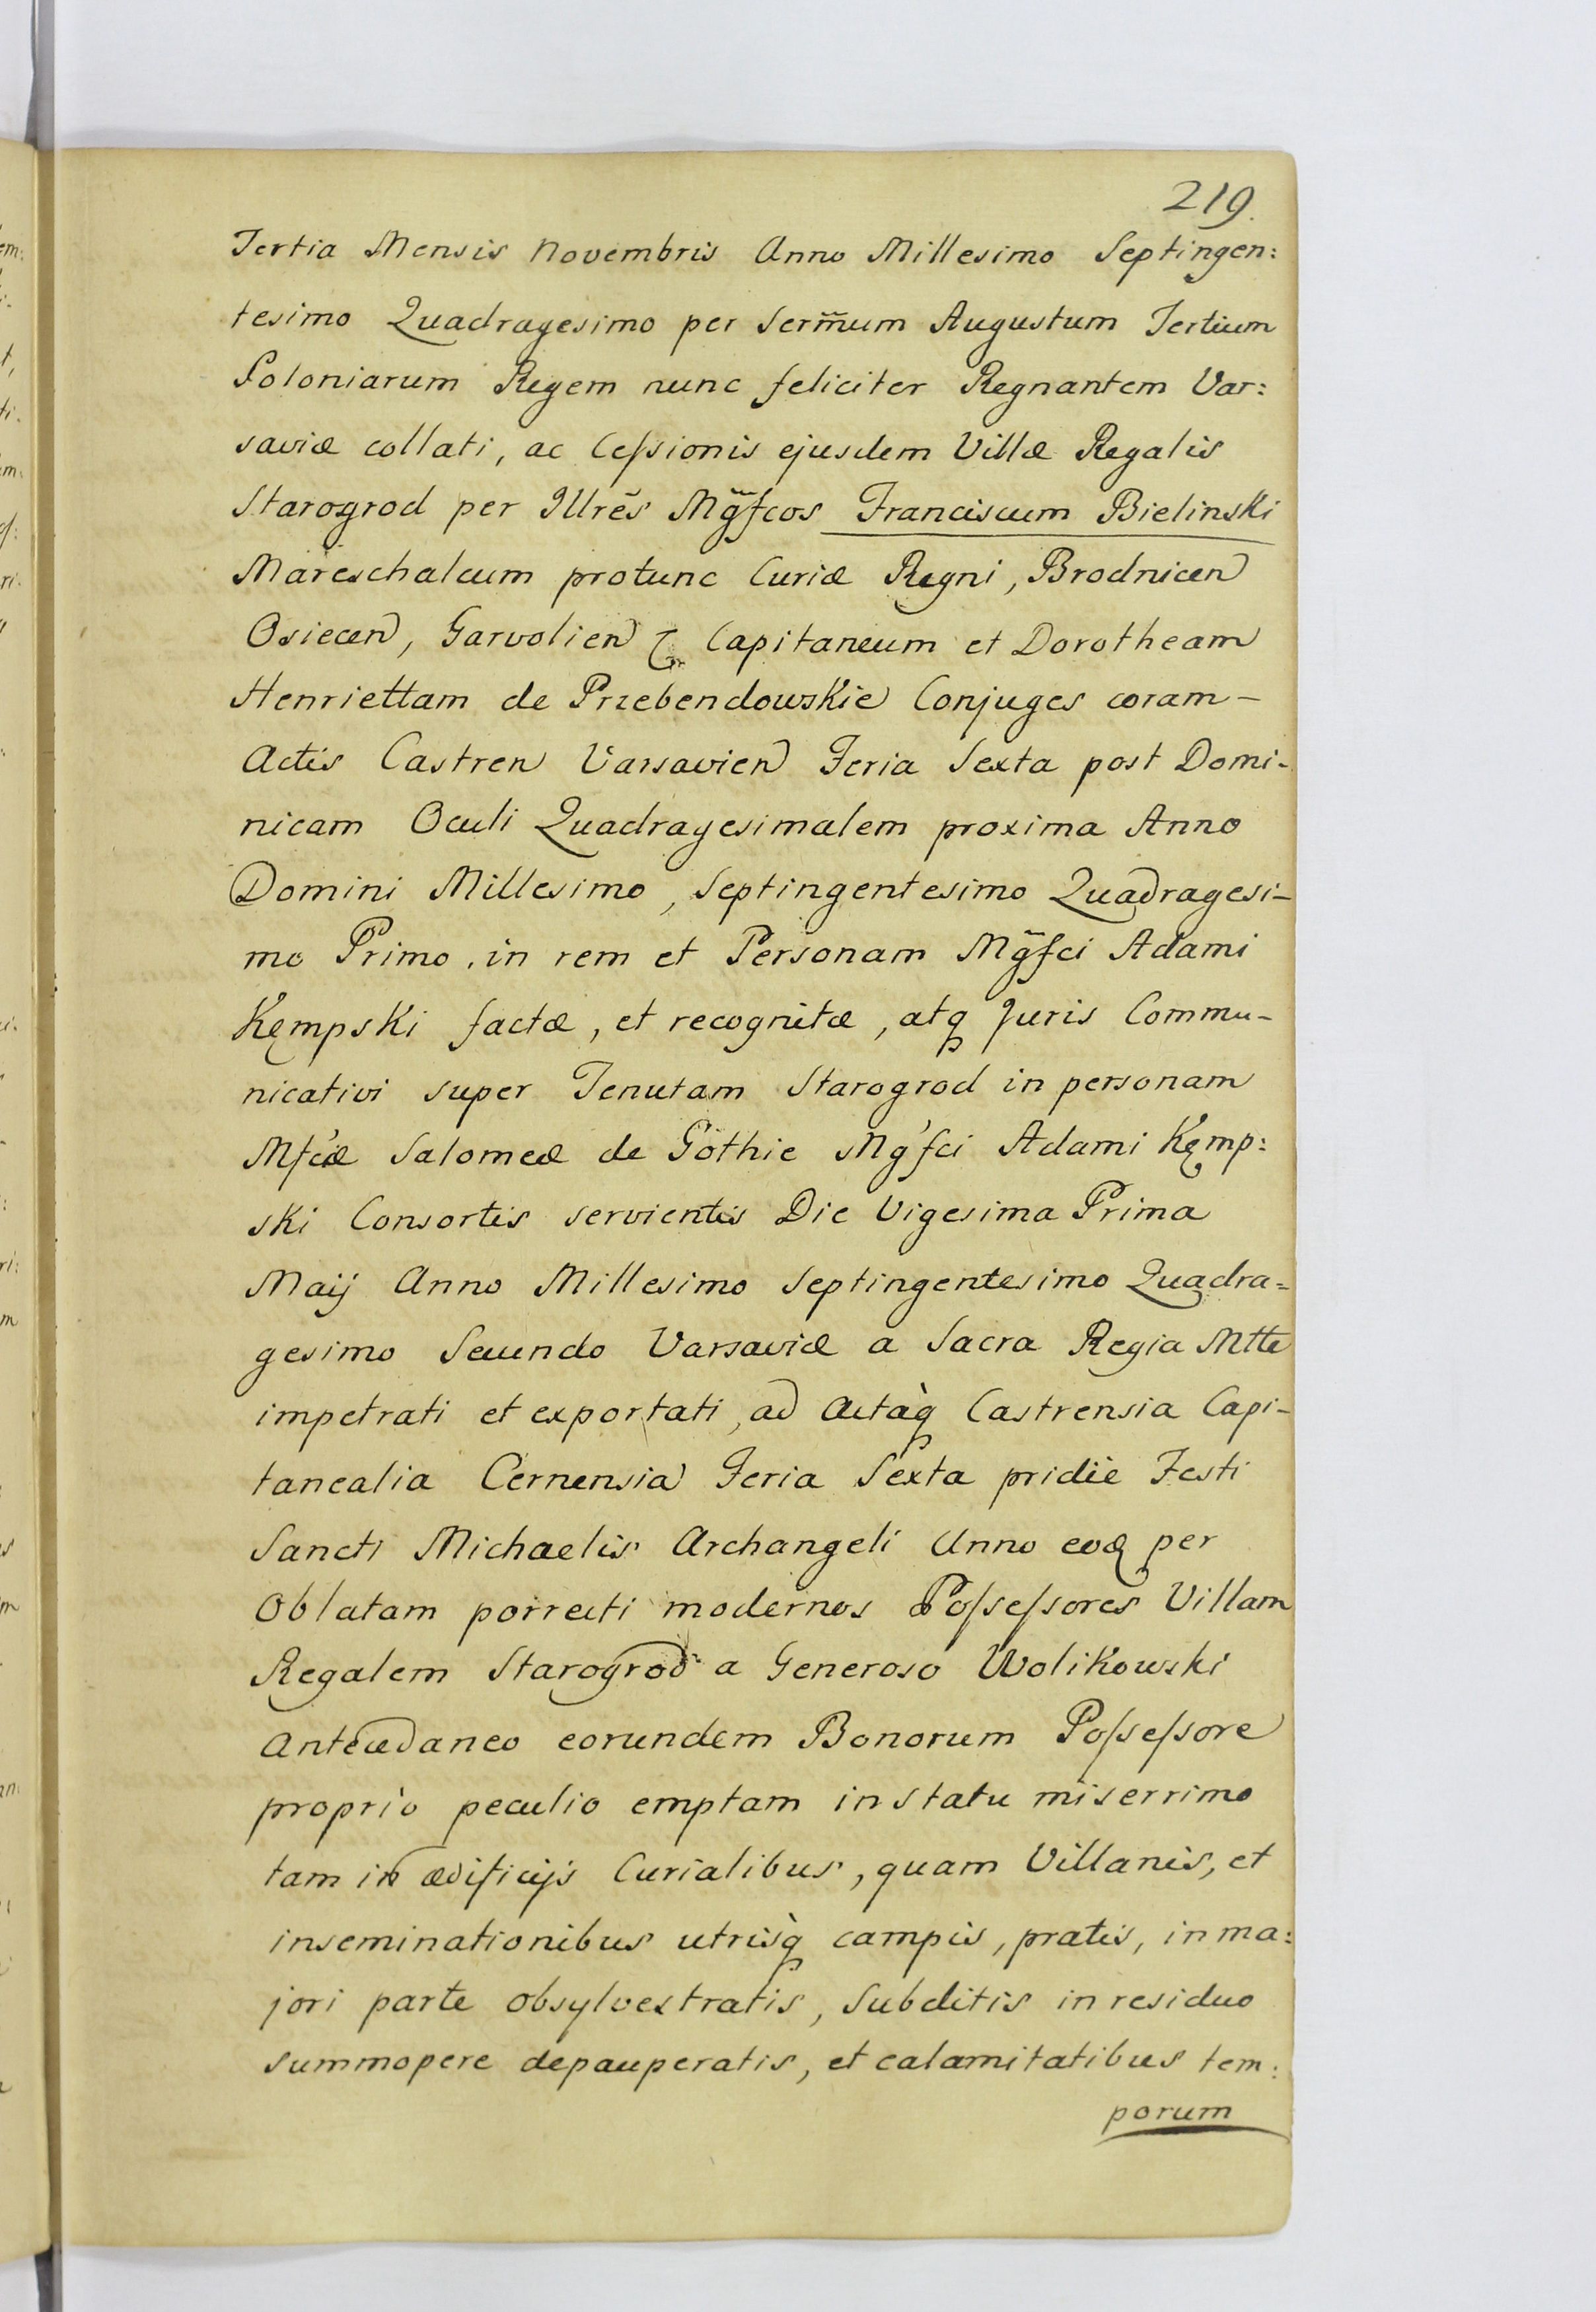 219.
Tertia Mensis Novembris Anno Millesimo Septingen:
tesimo Quadragesimo per Serm̃um Augustum Tertium
Poloniarum Regem nunc feliciter Regnantem Var:
saviæ collati, ac Ceſsionis ejusdem Villæ Regalis
Starogrod per Illrēs Mg̃fcos Franciscum Bielinski
Mareschalcum protunc Curiæ Regni, Brodnicen
Osiecen, Garvolien Capitaneum et Dorotheam
Henriettam de Przebendowskie Conjuges coram –
Actis Castren Varsavien Feria Sexta post Domi-
nicam Oculi Quadragesimalem proxima Anno
Domini Millesimo, Septingentesimo Quadragesi-
mo Primo, in rem et Personam Mg̃fci Adami
Kępmski factæ, et recognitæ, atq Juris Commu-
nicativi super Tenutam Starogrod in personam
Mfcæ Salomeæ de Göthie Mg'fci Adami Kęmp:
ski Consortis servientis Die Vigesima Prima
Maij Anno Millesimo Septingentesimo Quadra=
gesimo Secundo Varsaviæ a Sacra Regia Mtte
impetrati et exportati, ad Actàq Castrensia Capi-
tanealia Cernensia Feria Sexta pridie Festi
Sancti Michaelis Archangeli Anno eoq per
Oblatam porrecti modernos Poſseſsores Villam
Regalem Starogrod a Generoso Wolikowski
Antecedaneo eorundem Bonorum Poſseſsore
propriò peculio emptam in statu miserrimo
tam in ædificijs Curialibus, quam Villanis, et
inseminationibus utrisq̀ campis, pratis, in ma:
jori parte obsylvestratis, Subditis in residuo
summopere depauperatis, et calamitatibus tem:
porum